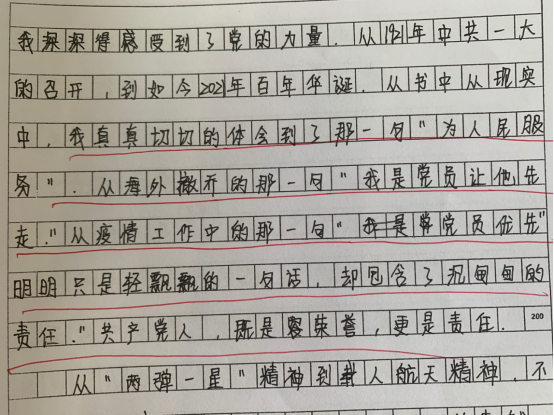 我深深得感受到了党的力量.从1921年中共一大
的召开,到如今2021年百年华诞.从书中从现实
中.我真真切切的体会到了那一句"为人民服
务".从海外撤乔的那一句"我是党员让他先
走."从疫情工作中的那一句"我是党员优先"
明明只是轻飘飘的一句话,却包含了沉甸甸的
责任."共产党人,既是荣誉,更是责任. 200
从"两弹一星"精神到载人航天精神.不